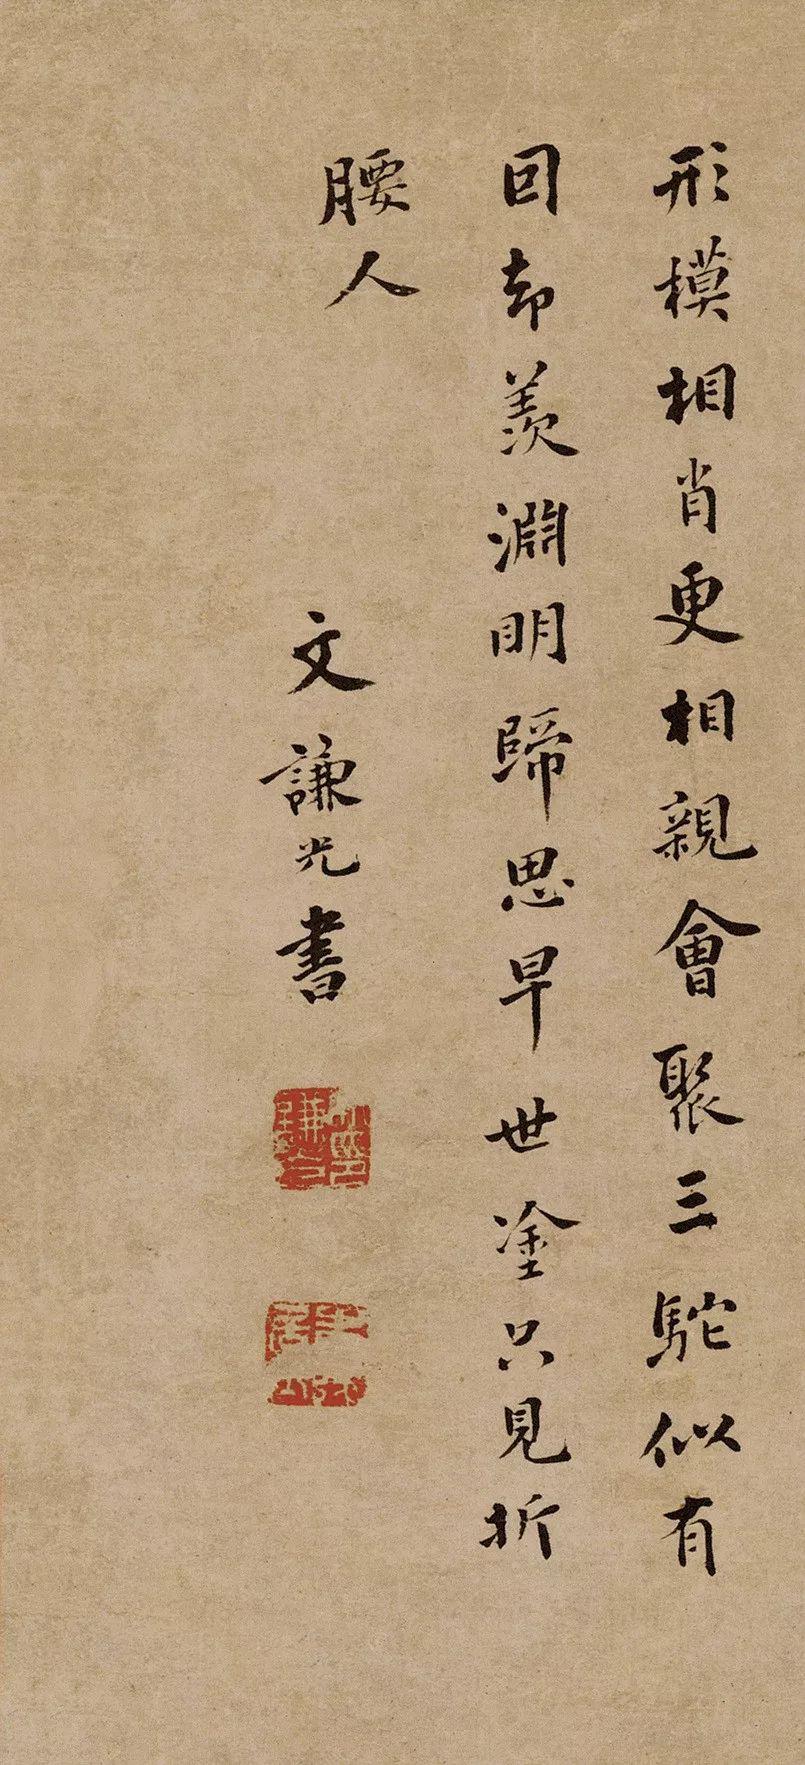 形模相肖更相親會聚三駝似有
囙却羨淵明歸思早世塗只見折
腰人
文謙光書